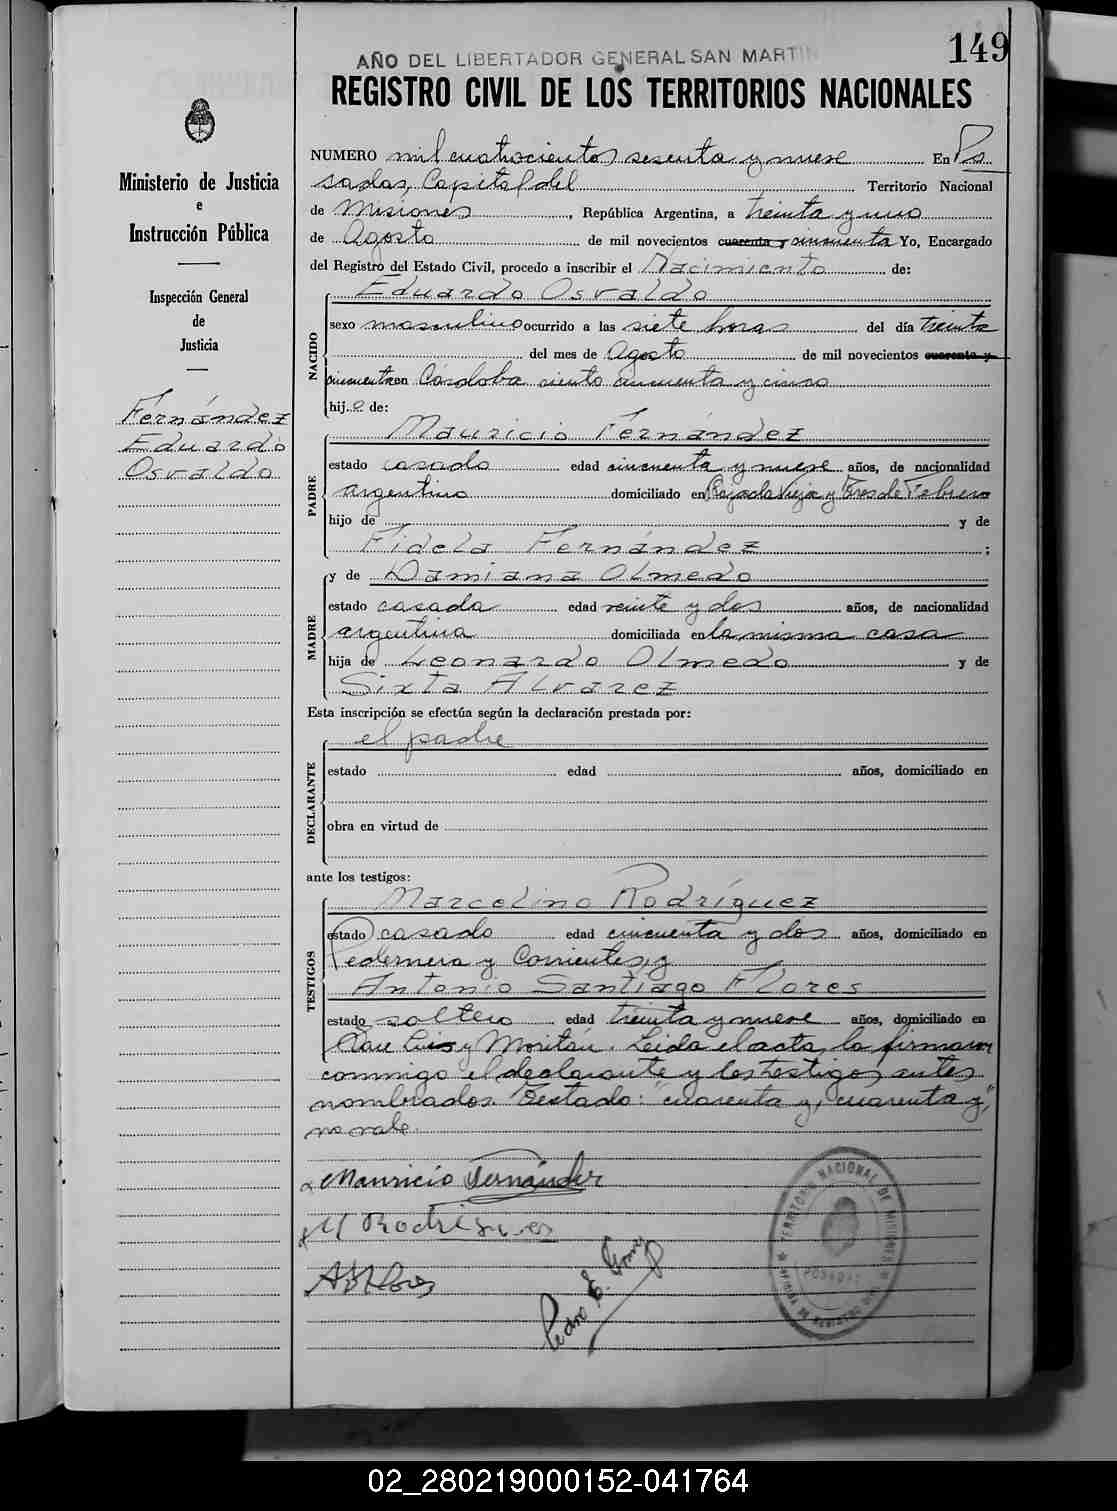 149
AÑO DEL LIBERTADOR GENERAL SAN MARTIN
REGISTRO CIVIL DE LOS TERRITORIOS NACIONALES
Ministerio de Justicia
e
Instrucción Pública
Inspección General
de
Justicia
Fernández
Eduardo
Osvaldo
NUMERO mil cuatrocientos sesenta y nueve En Po
sadas, Capital del Territorio Nacional
de Misiones, República Argentina, a treinta y uno
de Agosto de mil novecientos cuarenta y cincuenta Yo, Encargado
del Registro del Estado Civil, procedo a inscribir el Nacimiento de:
Eduardo Osvaldo
NACIDO
sexo masculino ocurrido a las siete horas del día treinta
del mes de Agosto de mil novecientos cuarenta y
cincuenta en Córdoba ciento cincuenta y cinco
hijo de:
Mauricio Fernández
PADRE
estado casado edad cincuenta y nueve años, de nacionalidad
argentino domiciliado en Bajada Vieja y Tres de Febrero
hijo de y de
Fidela Fernández ;
y de Damiana Olmedo
MADRE
estado casada edad veinte y dos años, de nacionalidad
argentina domiciliada en la misma casa
hija de Leonardo Olmedo y de
Sixta Alvarez
Esta inscripción se efectúa según la declaración prestada por:
el padre
DECLARANTE
estado edad años, domiciliado en
obra en virtud de
ante los testigos:
Marcelino Rodríguez
TESTIGOS
estado casado edad cincuenta y dos años, domiciliado en
Pedernera y Corrientes, y
Antonio Santiago Flores
estado soltero edad treinta y nueve años, domiciliado en
Luis y Moritán. Leída el acta, la firmaron
conmigo el declarante y los testigos antes
nombrados. Testado: "cuarenta y, cuarenta y,"
no vale.
Mauricio Fernández
M Rodrigues
A S Flores
Pedro E. Gomez
TERRITORIO NACIONAL DE MISIONES
POSADAS
OFICINA DE REGISTRO CIVIL
02_280219000152-041764